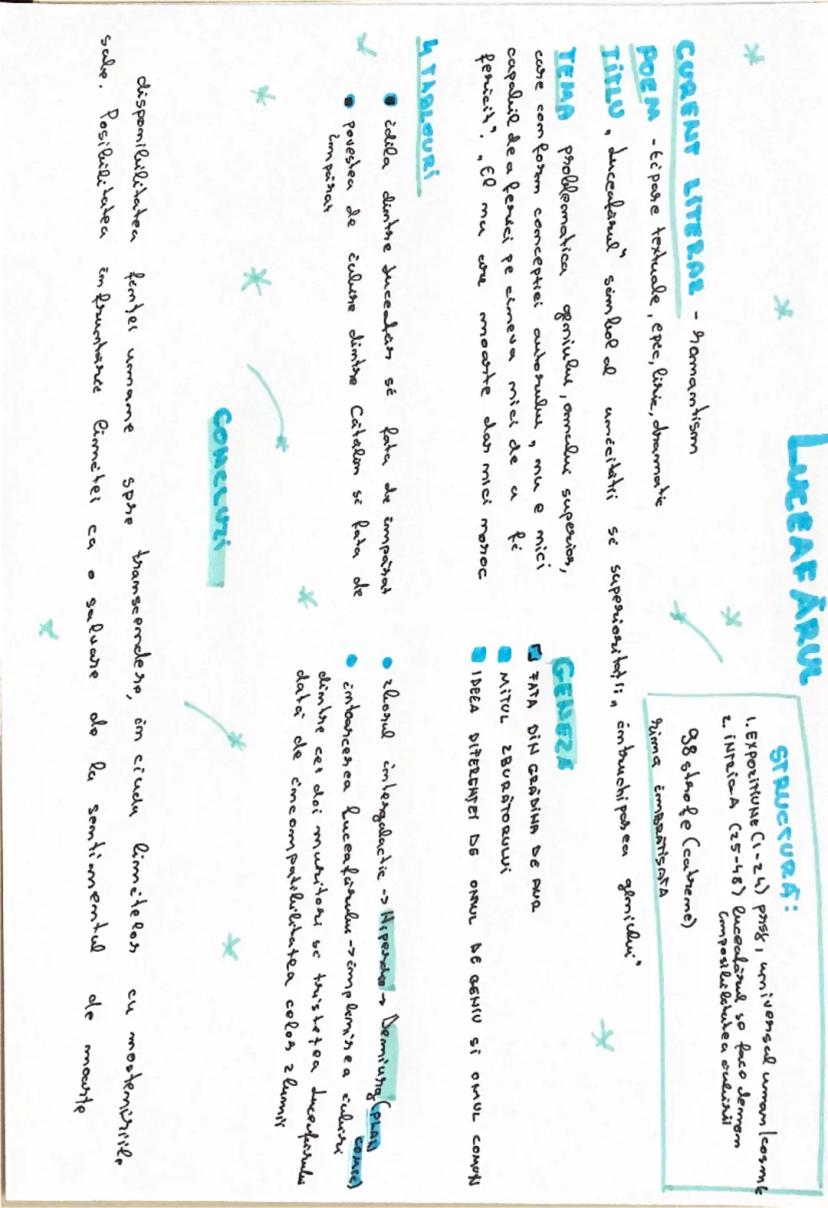 LUCEAFĂRUL
STRUCTURĂ:
1. EXPOZITIUNE (1-24) prsg, universal uman/cosmic
2. INTRIGA (25-48) luceafărul se face demon
imposibilitatea iubirii
98 strofe (catrene)
rima îmbrățișată
CURENT LITERAR - romantism
POEM - tipare textuale, epic, liric, dramatic
TITLU "Luceafărul" simbol al unicității si superiorității, întruchiparea geniului"
TEMA problematica geniului, omului superior,
care conform concepției autorului, nu e nici
capabil de a ferici pe cineva nici de a fi
fericit". "El nu are moarte dar nici noroc
GENEZA
FATA DIN GRĂDINA DE AUR
MITUL ZBURĂTORULUI
IDEEA DIFERENȚEI DE OMUL DE GENIU SI OMUL COMUN
4 TABLOURI
idila dintre luceafăr si fata de împărat
povestea de iubire dintre Cătălin si fata de
împărat
zborul intergalactic → Hiperion → Demiurg (PLAN
COSMIC)
întoarcerea luceafărului → împlinirea iubirii
dintre cei doi muritori si tristețea luceafărului
dată de incompatibilitatea celor 2 lumi
CONCLUZI
disponibilitatea ființei umane spre transcendere, în ciuda limitelor cu mostenirile
sale. Posibilitatea înfruntarii limitei ca o salvare de la sentimentul de moarte